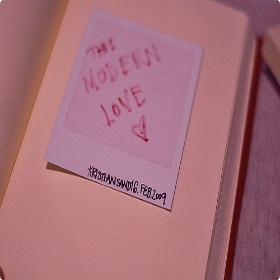 THIS
MODERN
LOVE
KRISTIANSAND, 6. FEB 2009